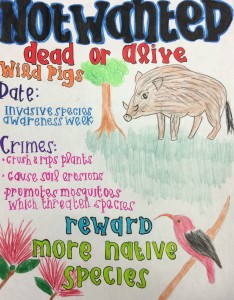 Not wanted
dead or alive
Wild Pigs
Date:
Invasive species
awareness week
Crimes:
• crush & rips plants
• cause soil erosions
• promotes mosquitoes
which threaten species
reward
more native
species